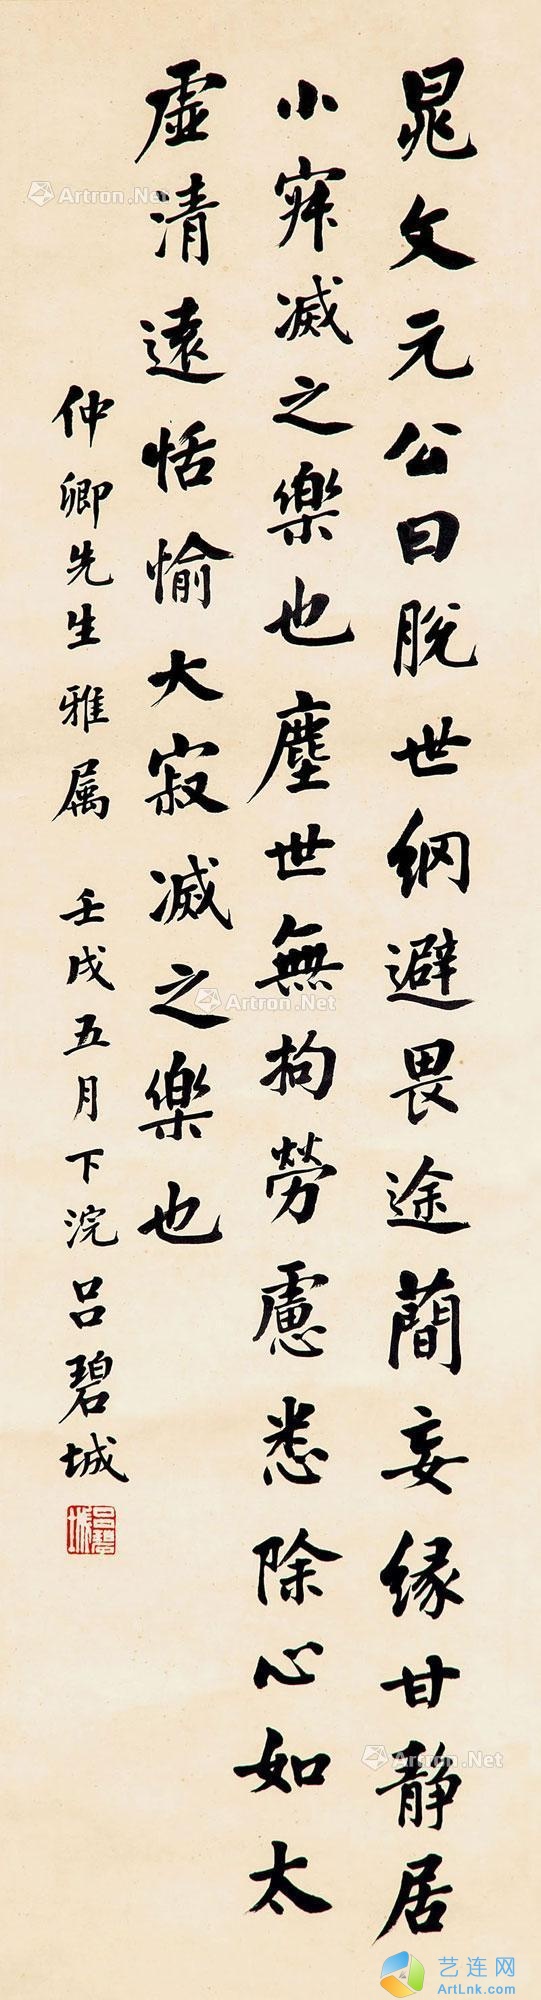 晁文元公曰脫世網避畏途蕳妄緣甘靜居
小寂滅之樂也塵世無拘勞慮悉除心如太
虛清遠恬愉大寂滅之樂也
仲卿先生雅属 壬戌五月下浣吕碧城
吕碧城
Artron.Net
Artron.Net
Artron.Net
Artron.Net
艺连网
ArtLnk.com